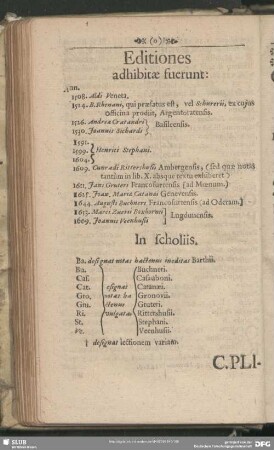 (o)
Editiones
adhibitæ fuerunt:
Ann.
1508. Aldi Veneta.
1514. B. Rhenani, qui præfatus est, vel Schurerii, ex cujus
Officina prodiit, Argentoratensis.
1526. Andreæ Cratandri
1530. Joannis Sichardi
Basileensis.
1591.
1599.
1604.
Henrici Stephani.
1609. Conradi Rittershusii Ambergensis, (sed quæ notas
tantùm in lib. X. absque textu exhibuit.)
1611. Jani Gruteri Francofurtensis (ad Mœnum.)
1625. Joan. Mariæ Catanæi Genevensis.
1644. Augusti Buchneri Francofurtensis (ad Oderam.)
1653. Marci Zuerii Boxhornii
1669. Joannis Veenhusii
Lugdunensis.
In scholiis.
Ba. designat notas hactenus ineditas Barthii.
Bu. Buchneri.
Cas. Casauboni.
Cat. esignat Catanæi.
Gro. notas ha Gronovii.
Gru. ctenus Gruteri.
Ri. vulgatas Rittershusii.
St. Stephani.
Ve. Veenhusii.
designat lectionem variam.
C. PLI-
SLUB